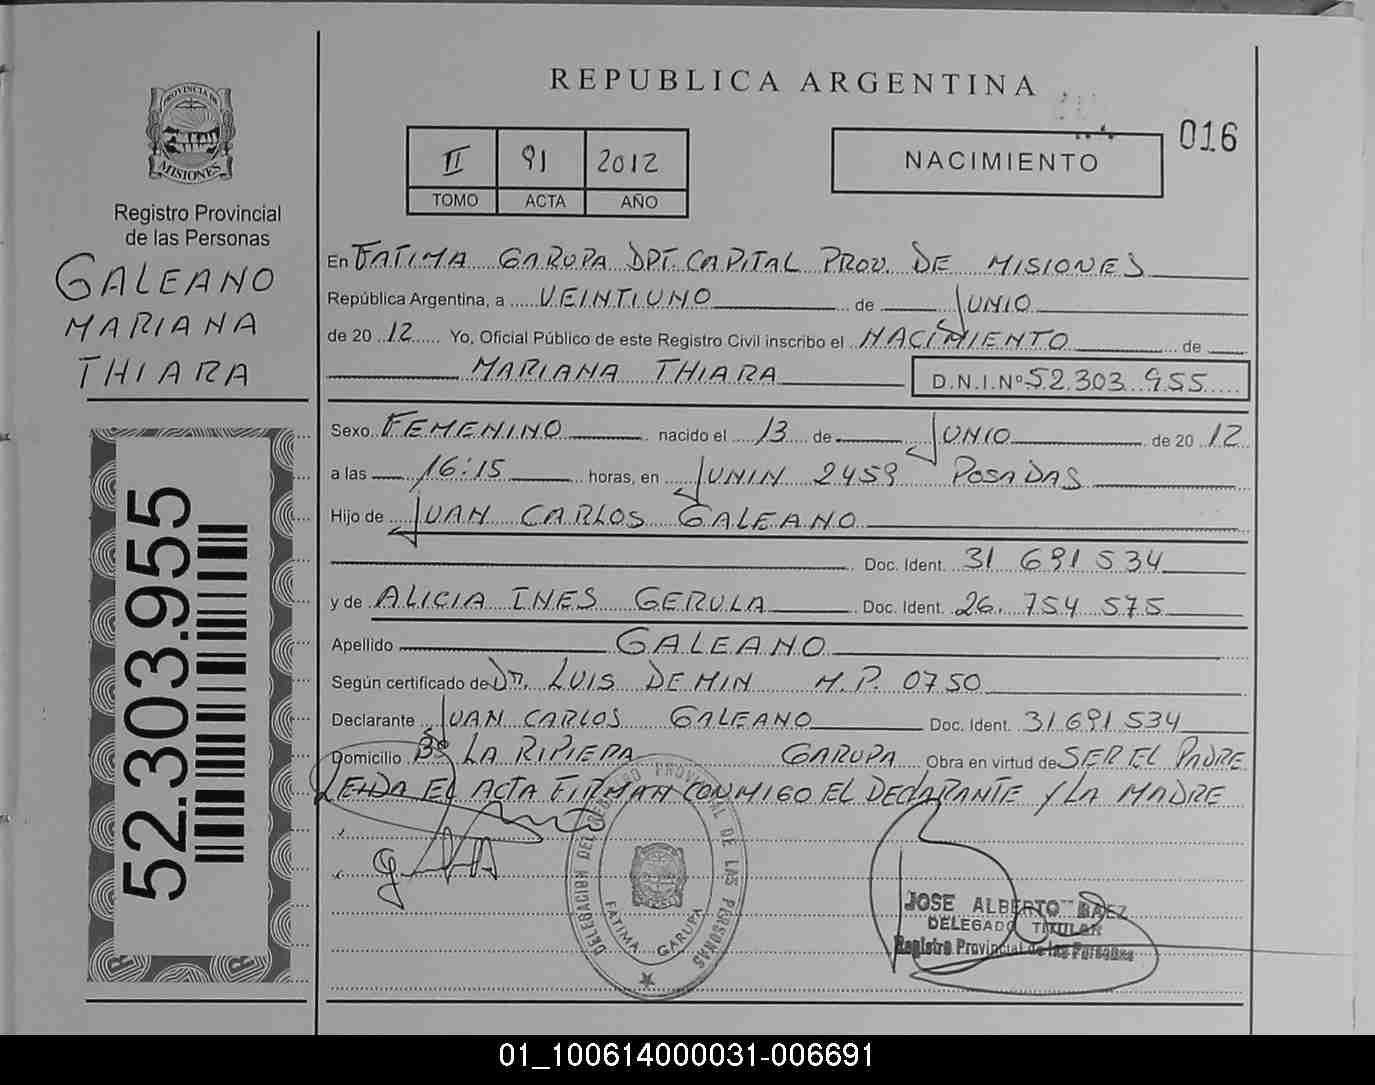 REPUBLICA ARGENTINA
016
PROVINCIA DE
MISIONES
Registro Provincial
de las Personas
GALEANO
MARIANA
THIARA
52.303.955
II 91 2012
TOMO ACTA AÑO
NACIMIENTO
En FATIMA GARUPA DPT. CAPITAL PROV. DE MISIONES
República Argentina, a VEINTIUNO de JUNIO
de 2012 Yo, Oficial Público de este Registro Civil inscribo el NACIMIENTO de
MARIANA THIARA D.N.I.Nº 52.303.955
Sexo FEMENINO nacido el 13 de JUNIO de 2012
a las 16:15 horas, en JUNIN 2459 POSADAS
Hijo de JUAN CARLOS GALEANO
Doc. Ident. 31 691 534
y de ALICIA INES GERULA Doc. Ident. 26. 754 575
Apellido GALEANO
Según certificado de Dr. LUIS DEMIN M.P. 0750
Declarante JUAN CARLOS GALEANO Doc. Ident. 31 691 534
Domicilio Bº LA RIPIERA GARUPA Obra en virtud de SER EL PADRE
LEIDA EL ACTA FIRMAN CONMIGO EL DECLARANTE Y LA MADRE
DELEGACION DEL REGISTRO PROVINCIAL DE LAS PERSONAS
FATIMA - GARUPA
JOSE ALBERTO BAEZ
DELEGADO TITULAR
Registro Provincial de las Personas
01_100614000031-006691